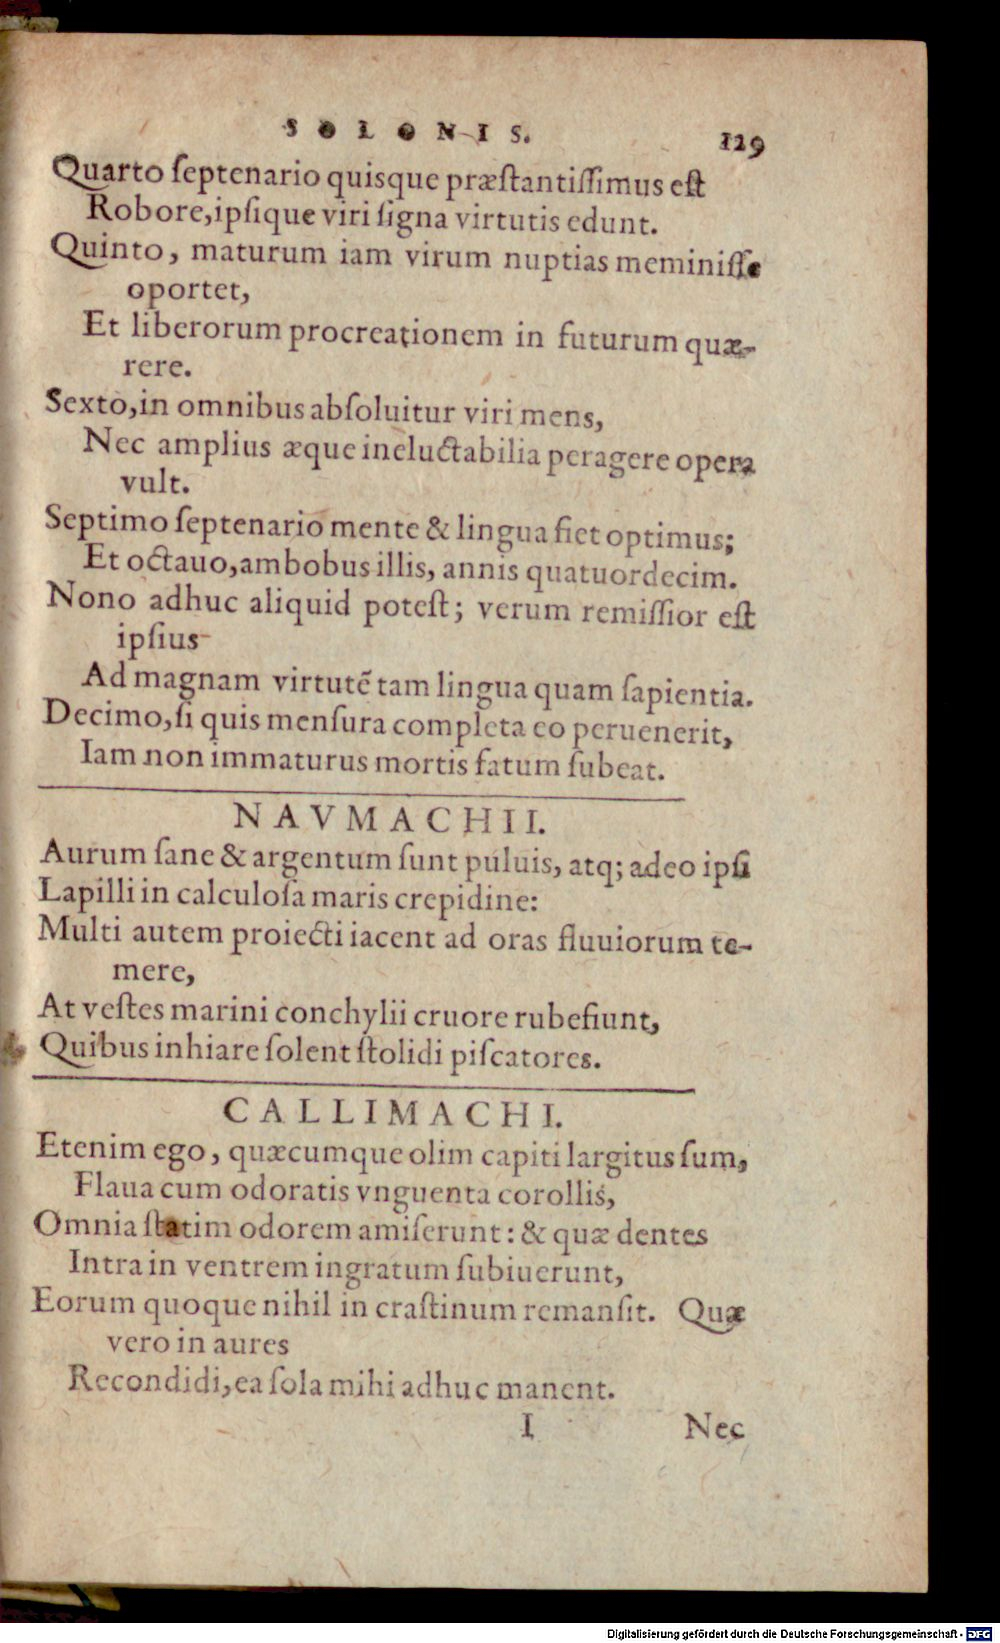 SOLONIS. 129
Quarto ſeptenario quisque præſtantiſſimus eſt
Robore,ipſique viri ſigna virtutis edunt.
Quinto, maturum iam virum nuptias meminiſſe
oportet,
Et liberorum procreationem in futurum quæ-
rere.
Sexto,in omnibus abſoluitur viri mens,
Nec amplius æque ineluctabilia peragere opera
vult.
Septimo ſeptenario mente & lingua fiet optimus;
Et octauo,ambobus illis, annis quatuordecim.
Nono adhuc aliquid poteſt; verum remiſſior eſt
ipſius
Ad magnam virtutē tam lingua quam ſapientia.
Decimo,ſi quis menſura completa eo peruenerit,
Iam non immaturus mortis fatum ſubeat.
NAVMACHII.
Aurum ſane & argentum ſunt puluis, atq; adeo ipſi
Lapilli in calculoſa maris crepidine:
Multi autem proiecti iacent ad oras fluuiorum te-
mere,
At veſtes marini conchylii cruore rubefiunt,
Quibus inhiare ſolent ſtolidi piſcatores.
CALLIMACHI.
Etenim ego, quæcumque olim capiti largitus ſum,
Flaua cum odoratis vnguenta corollis,
Omnia ſtatim odorem amiſerunt: & quæ dentes
Intra in ventrem ingratum ſubiuerunt,
Eorum quoque nihil in craſtinum remanſit. Quæ
vero in aures
Recondidi,ea ſola mihi adhuc manent.
I Nec
Digitalisierung gefördert durch die Deutsche Forschungsgemeinschaft - DFG